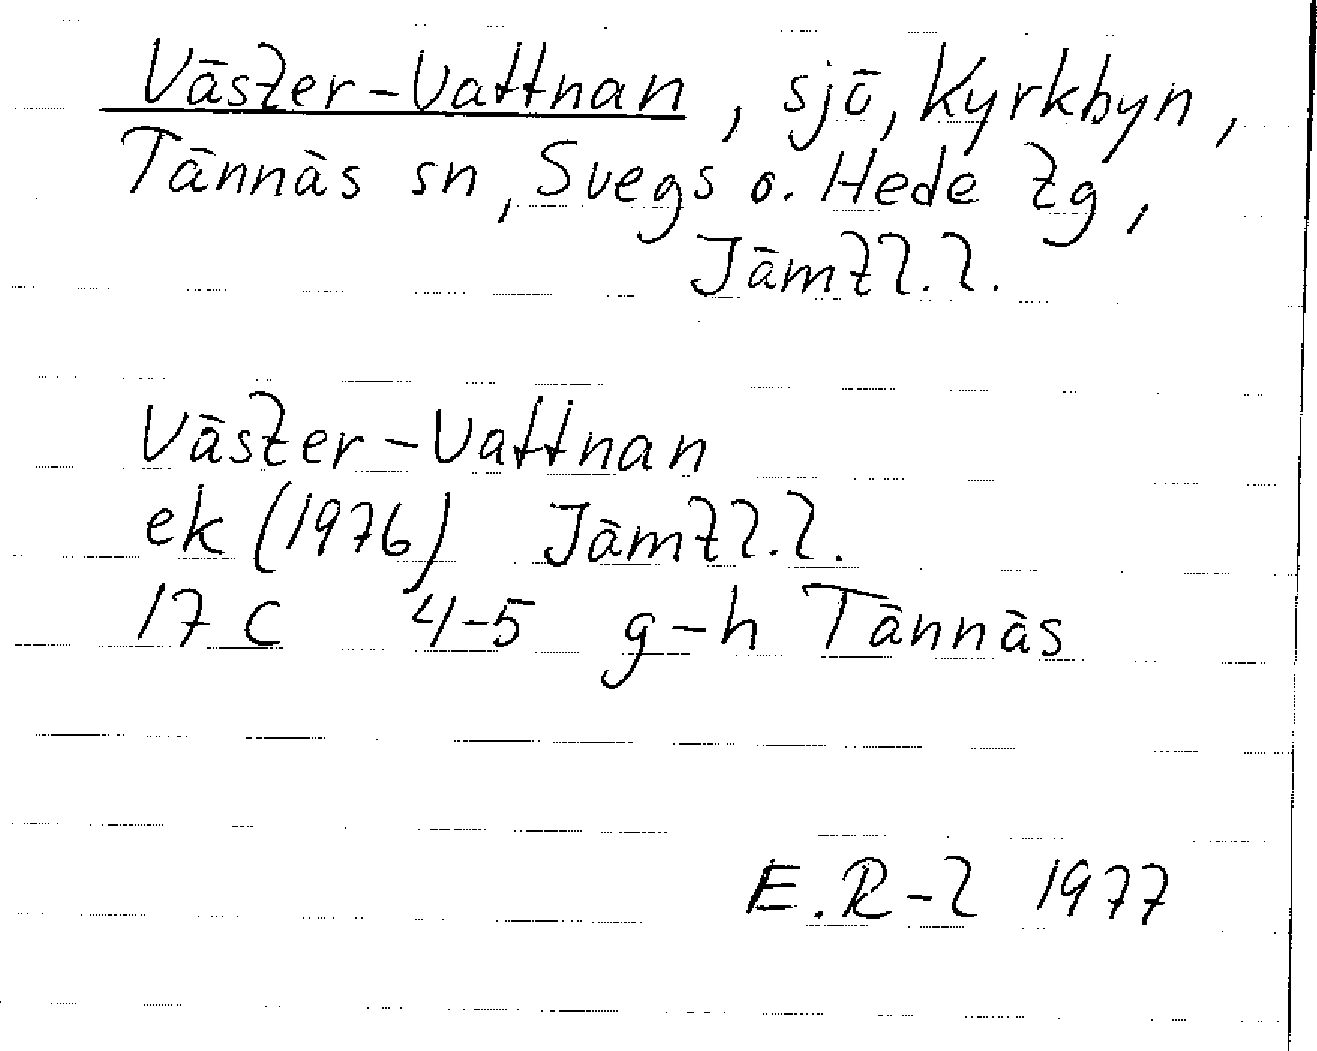 Väster-Vattnan, sjö, Kyrkbyn,
Tännäs sn, Svegs o. Hede tg,
Jämtl.l.
Väster-Vattnan
ek (1976) Jämtl.l.
17 C 4-5 g-h Tännäs
E.R-l 1977